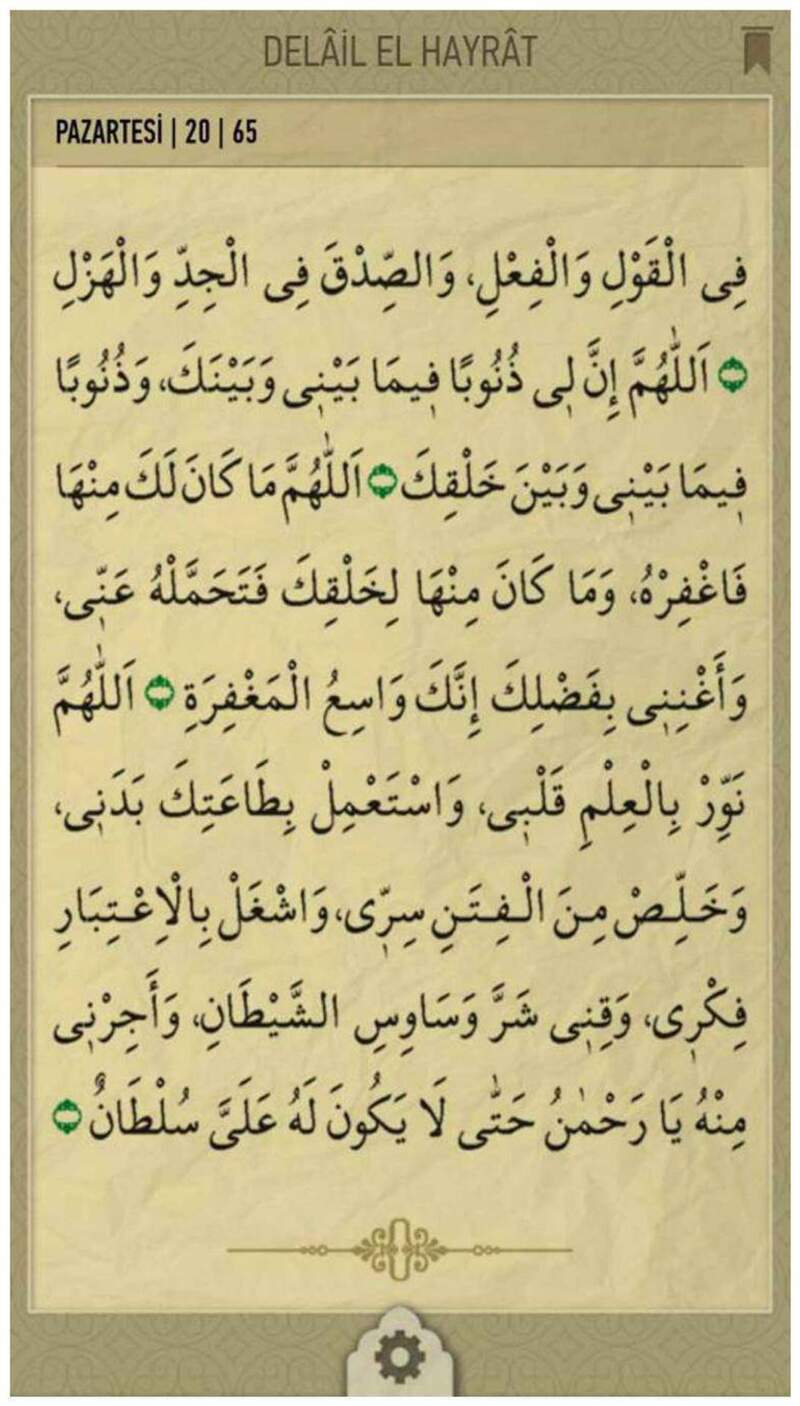 DELÂİL EL HAYRÂT
PAZARTESİ | 20 | 65
فِى الْقَوْلِ وَالْفِعْلِ، وَالصِّدْقَ فِى الْجِدِّ وَالْهَزْلِ
اَللّٰهُمَّ إِنَّ لِى ذُنُوبًا فِيمَا بَيْنِى وَبَيْنَكَ، وَذُنُوبًا
فِيمَا بَيْنِى وَبَيْنَ خَلْقِكَ اَللّٰهُمَّ مَا كَانَ لَكَ مِنْهَا
فَاغْفِرْهُ، وَمَا كَانَ مِنْهَا لِخَلْقِكَ فَتَحَمَّلْهُ عَنِّى،
وَأَغْنِنِى بِفَضْلِكَ إِنَّكَ وَاسِعُ الْمَغْفِرَةِ اَللّٰهُمَّ
نَوِّرْ بِالْعِلْمِ قَلْبِى، وَاسْتَعْمِلْ بِطَاعَتِكَ بَدَنِى،
وَخَلِّصْ مِنَ الْفِتَنِ سِرِّى، وَاشْغَلْ بِالْاِعْتِبَارِ
فِكْرِى، وَقِنِى شَرَّ وَسَاوِسِ الشَّيْطَانِ، وَأَجِرْنِى
مِنْهُ يَا رَحْمٰنُ حَتّٰى لَا يَكُونَ لَهُ عَلَىَّ سُلْطَانٌ